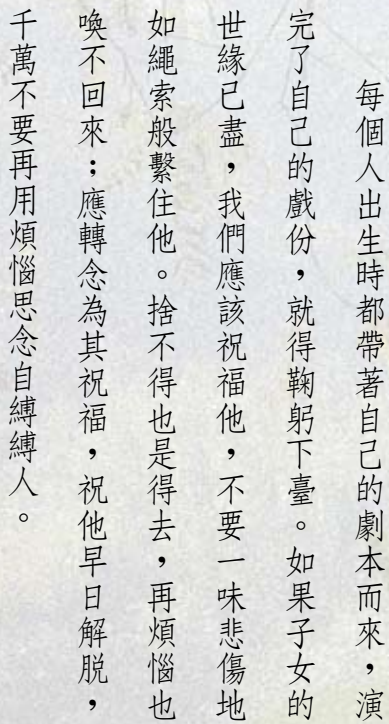 每個人出生時都帶著自己的劇本而來，演
完了自己的戲份，就得鞠躬下臺。如果子女的
世緣已盡，我們應該祝福他，不要一味悲傷地
如繩索般繫住他。捨不得也是得去，再煩惱也
喚不回來；應轉念為其祝福，祝他早日解脫，
千萬不要再用煩惱思念自縛縛人。